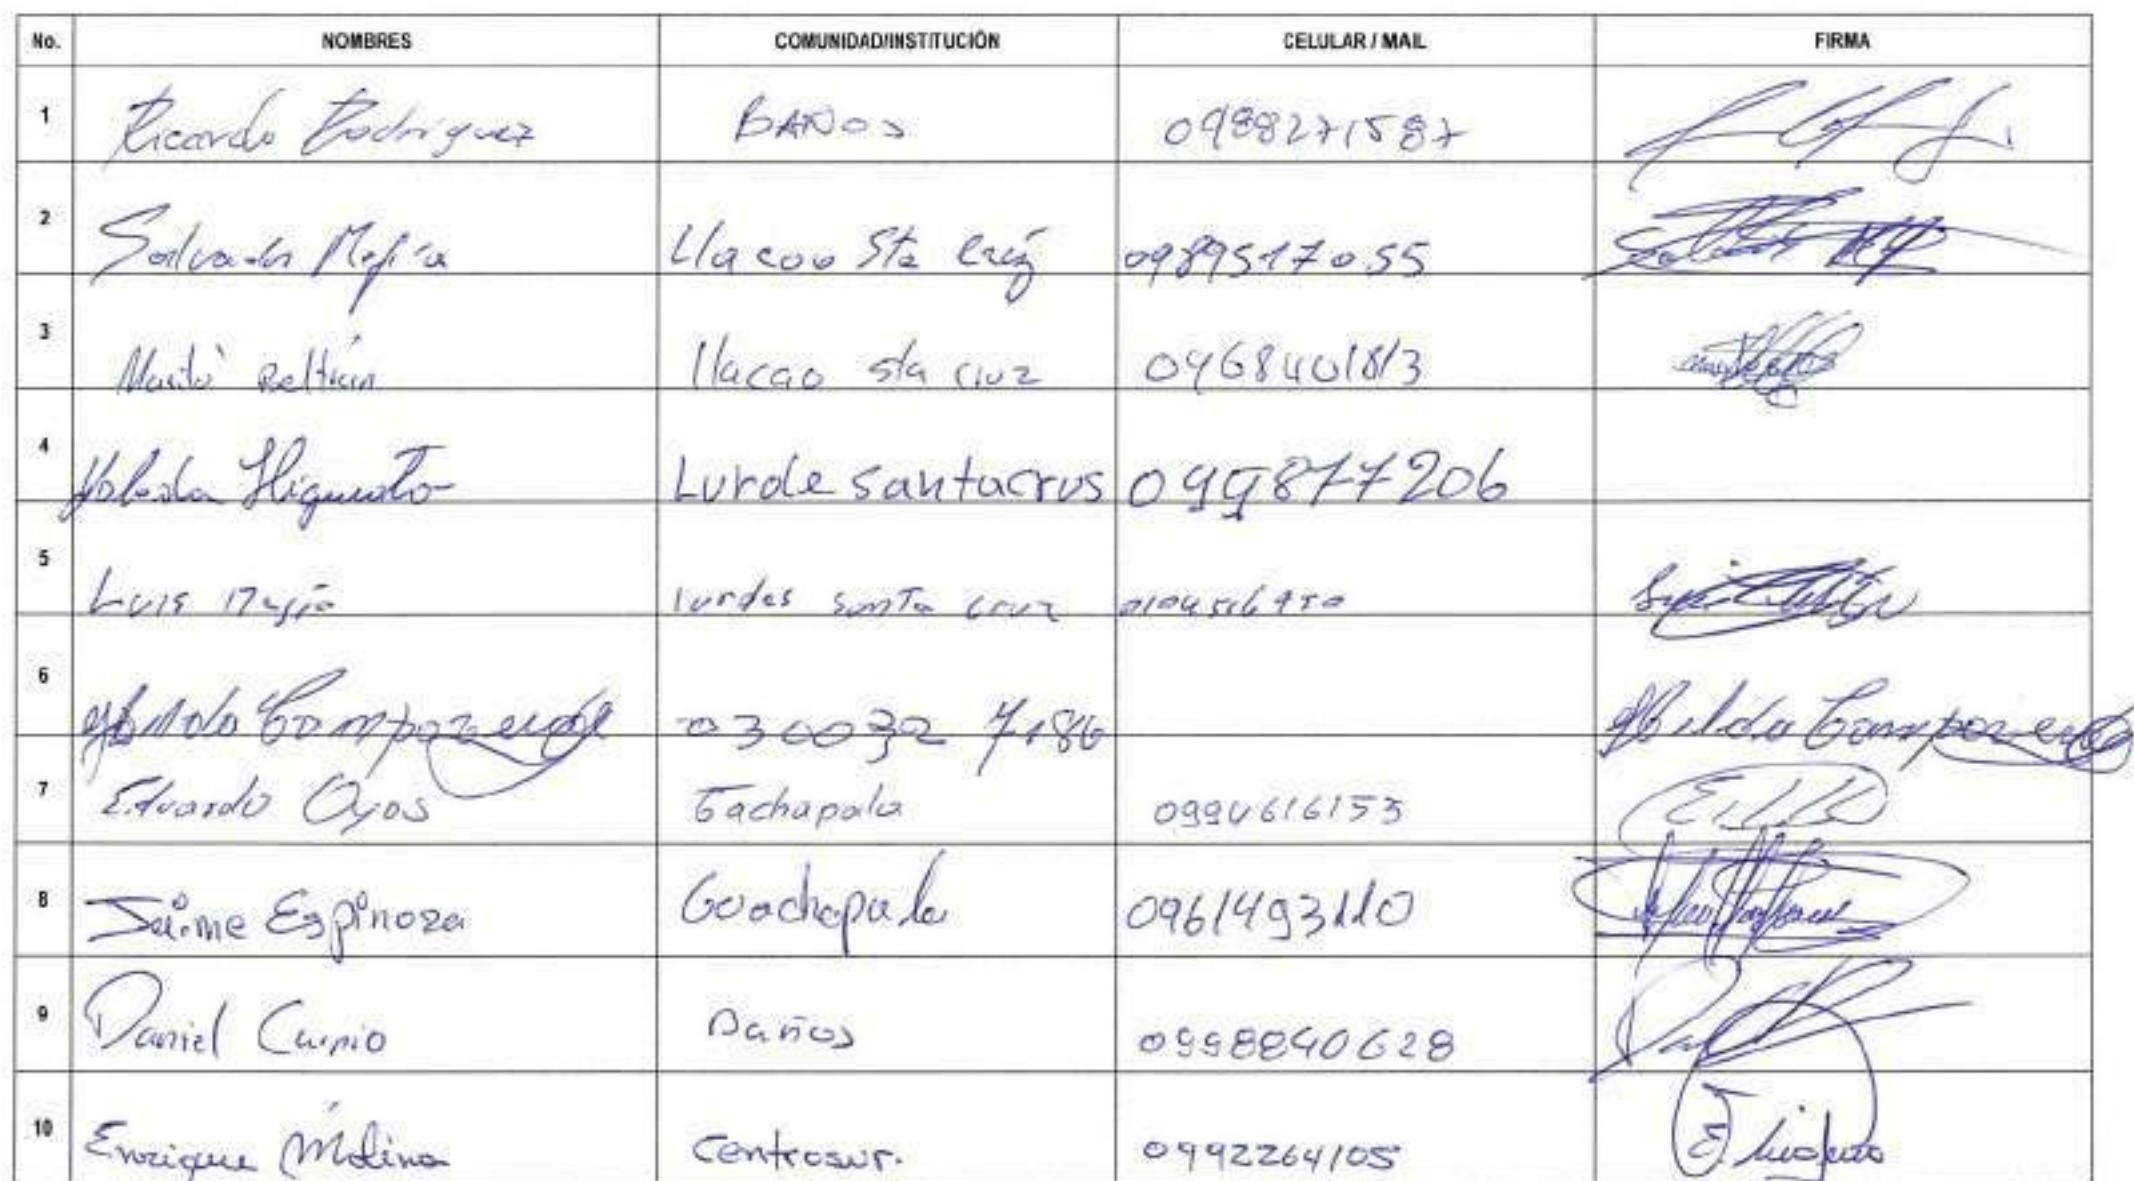 No. NOMBRES COMUNIDAD/INSTITUCIÓN CELULAR / MAIL FIRMA
1 Ricardo Rodriguez BAÑOS 0988271587
2 Salvador Mejía Llacao Sta Cruz 0989517055
3 Beltrán llacao sta cruz 0968401813
4 Lurde santacrus 099877206
5 Luis Mejía lurdes santa cruz
6 Campoverde 030032 7186 Hilda Campoverde
7 Eduardo Oyos Gachapala 0994616153
8 Jaime Espinoza Guachapala 0961493110
9 Daniel Carpio Baños 0998840628
10 Enrique Molina Centrosur. 0992264105